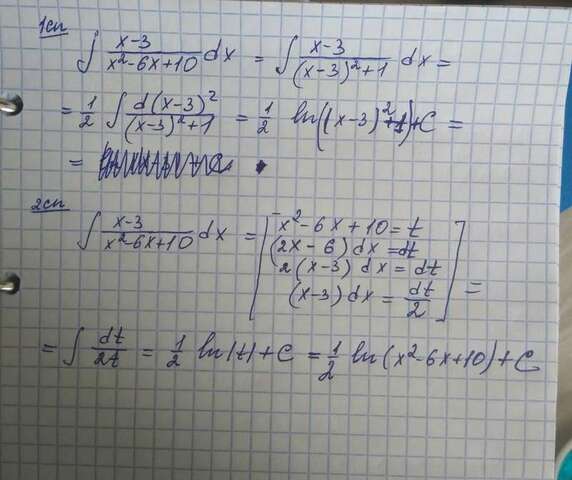 1сп
∫ x-3 / x²-6x+10 dx = ∫ x-3 / (x-3)²+1 dx =
= 1/2 ∫ d(x-3)² / (x-3)²+1 = 1/2 ln((x-3)²+1)+C =
=
2сп
∫ x-3 / x²-6x+10 dx = [ x²-6x+10=t
(2x-6)dx=dt
2(x-3)dx=dt
(x-3)dx=dt/2 ] =
= ∫ dt/2t = 1/2 ln|t|+C = 1/2 ln(x²-6x+10)+C